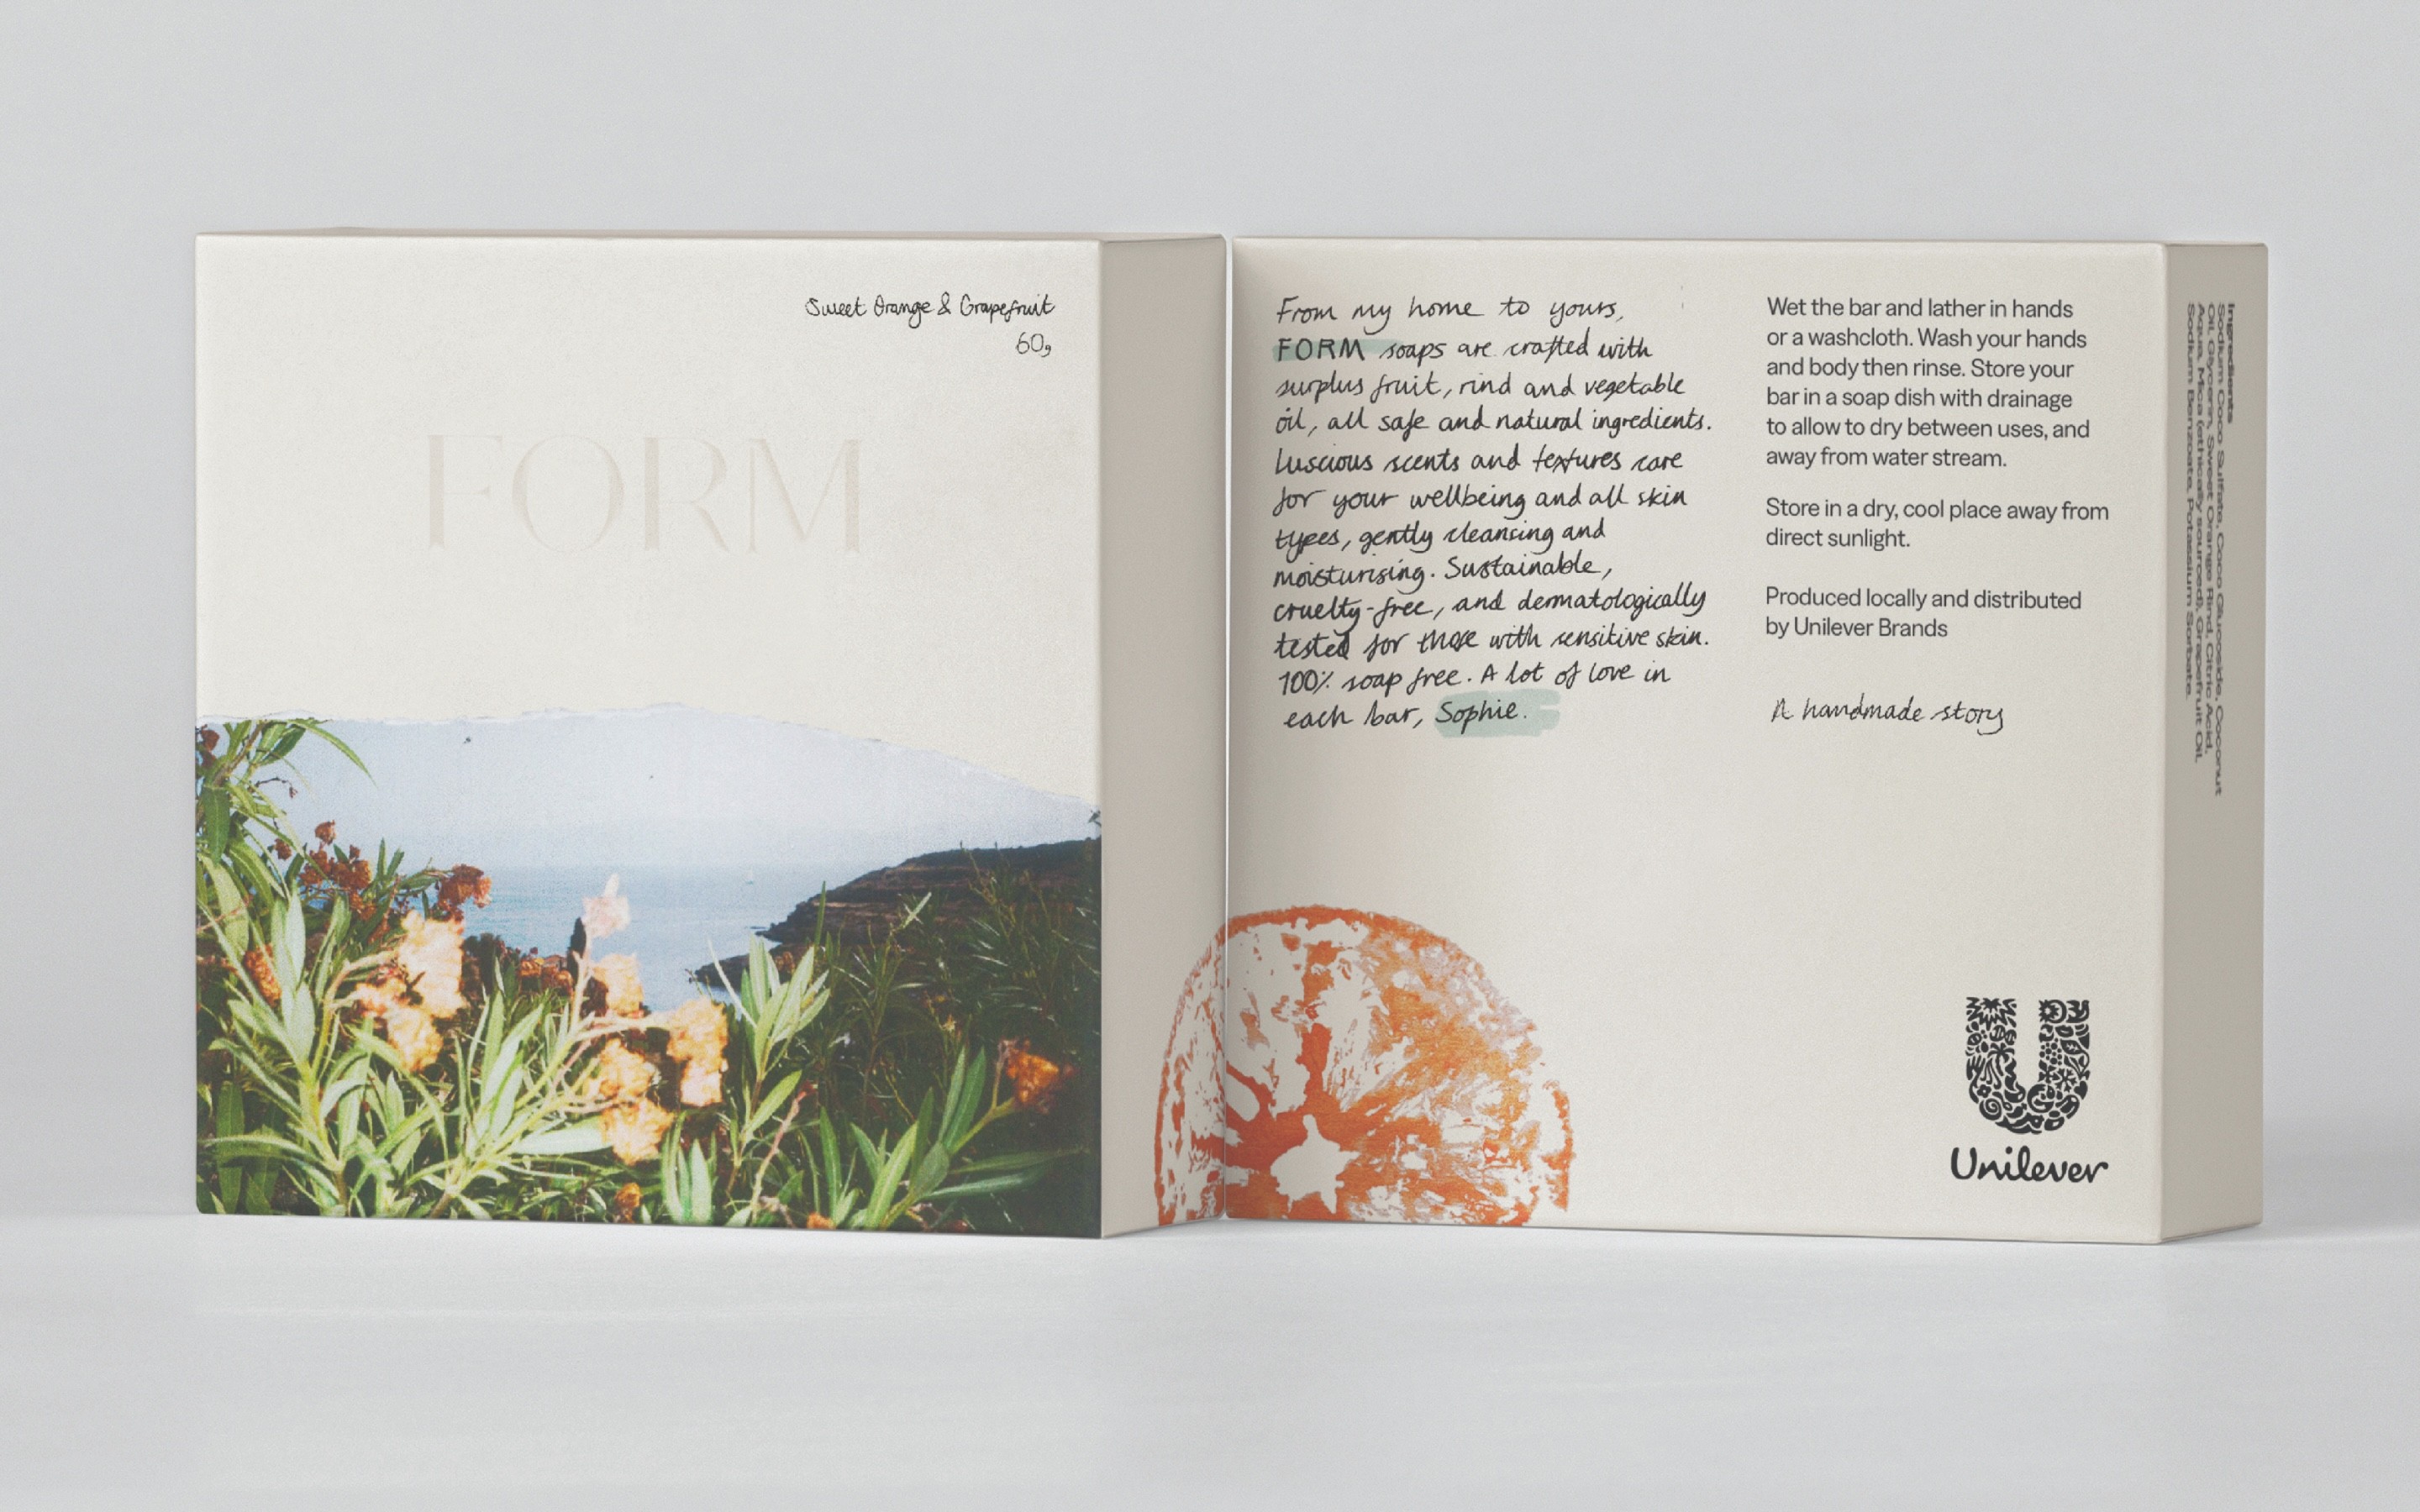 Sweet Orange & Grapefruit
60g
FORM
From my home to yours,
FORM soaps are crafted with
surplus fruit, rind and vegetable
oil, all safe and natural ingredients.
Luscious scents and textures care
for your wellbeing and all skin
types, gently cleansing and
moisturising. Sustainable,
cruelty-free, and dermatologically
tested for those with sensitive skin.
100% soap free. A lot of love in
each bar, Sophie.
Wet the bar and lather in hands
or a washcloth. Wash your hands
and body then rinse. Store your
bar in a soap dish with drainage
to allow to dry between uses, and
away from water stream.
Store in a dry, cool place away from
direct sunlight.
Produced locally and distributed
by Unilever Brands
A handmade story
Unilever
Ingredients
Sodium Coco Sulfate, Coco Glucoside, Coconut
Oil, Glycerin, Sweet Orange Rind, Citric Acid,
Aqua, Mica (ethically sourced), Grapefruit Oil,
Sodium Benzoate, Potassium Sorbate.